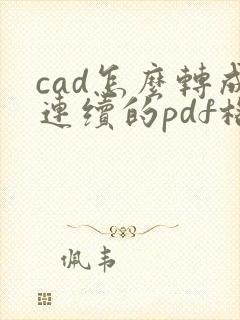 cad怎麼轉成
連續的pdf格
佩韦